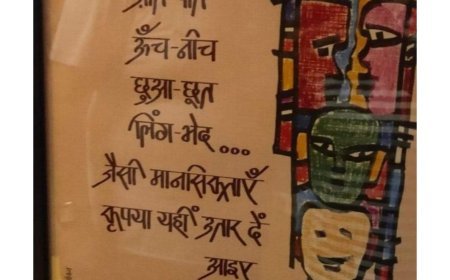 ऊँच-नीच
छुआ-छूत
लिंग-भेद...
जैसी मानसिकताएँ
कृपया यहीं उतार दें
आइए